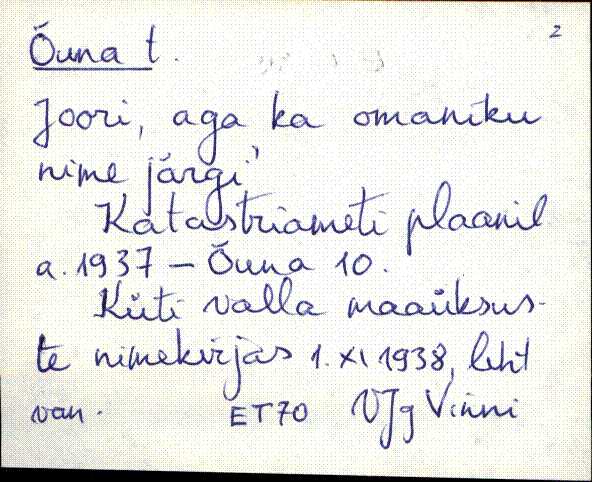 2
Õuna t.
Joori, aga ka omaniku
nime järgi.
Katastriameti plaanil
a. 1937 – Õuna 10.
Küti valla maaüksus-
te nimekirjas 1. XI 1938, leht
van. ET70 VJg Vinni